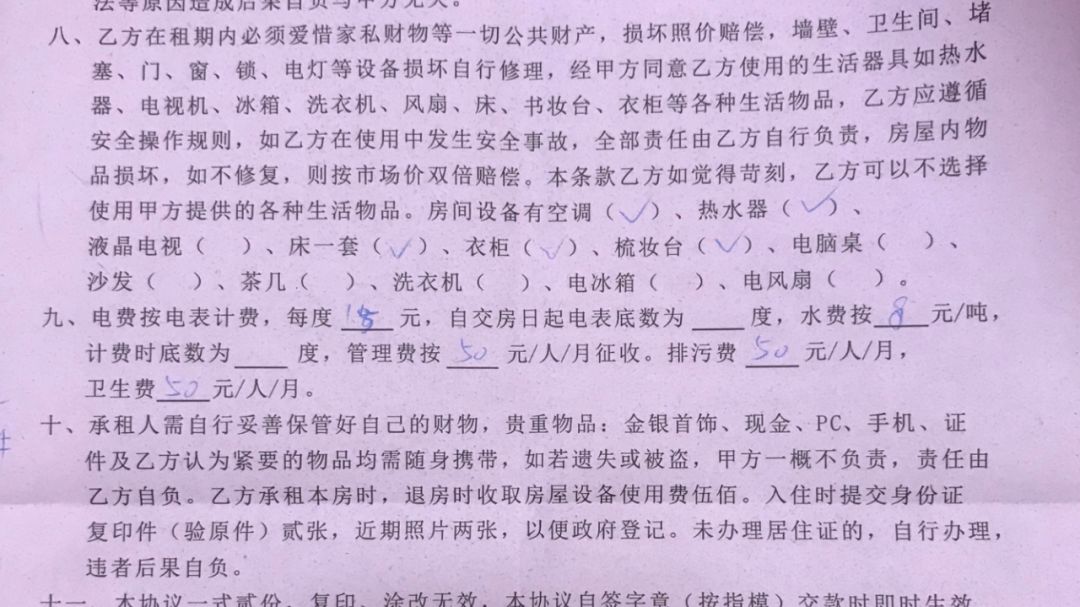 法等原因造成后果自负与甲方无关。
八、乙方在租期内必须爱惜家私财物等一切公共财产，损坏照价赔偿，墙壁、卫生间、堵
塞、门、窗、锁、电灯等设备损坏自行修理，经甲方同意乙方使用的生活器具如热水
器、电视机、冰箱、洗衣机、风扇、床、书妆台、衣柜等各种生活物品，乙方应遵循
安全操作规则，如乙方在使用中发生安全事故，全部责任由乙方自行负责，房屋内物
品损坏，如不修复，则按市场价双倍赔偿。本条款乙方如觉得苛刻，乙方可以不选择
使用甲方提供的各种生活物品。房间设备有空调（✓）、热水器（✓）、
液晶电视（ ）、床一套（✓）、衣柜（✓）、梳妆台（✓）、电脑桌（ ）、
沙发（ ）、茶几（ ）、洗衣机（ ）、电冰箱（ ）、电风扇（ ）。
九、电费按电表计费，每度____元，自交房日起电表底数为____度，水费按 8 元/吨，
计费时底数为____度，管理费按 50 元/人/月征收。排污费 50 元/人/月，
卫生费 50 元/人/月。
十、承租人需自行妥善保管好自己的财物，贵重物品：金银首饰、现金、PC、手机、证
件及乙方认为紧要的物品均需随身携带，如若遗失或被盗，甲方一概不负责，责任由
乙方自负。乙方承租本房时，退房时收取房屋设备使用费伍佰。入住时提交身份证
复印件（验原件）贰张，近期照片两张，以便政府登记。未办理居住证的，自行办理，
违者后果自负。
十一、本协议一式贰份，复印、涂改无效，本协议自签字章（按指模）交款时即时生效